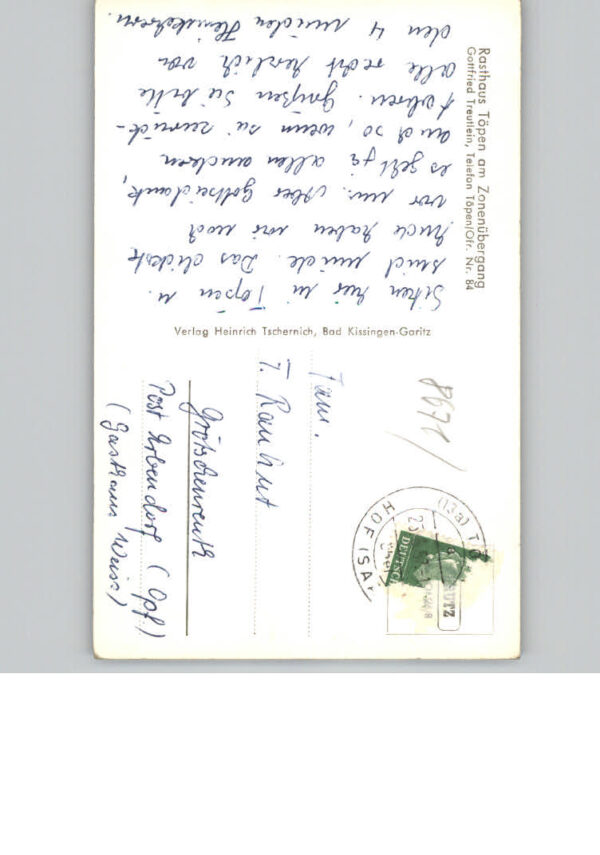 Rasthaus Töpen am Zonenübergang
Gottfried Treutlein, Telefon Töpen/Ofr. Nr. 84
Sitzen hier in Töpen u.
sind müde. Das dickste
haben wir noch
vor uns. Aber Gottseidank,
es geht ja allen anderen
auch so, wenn sie zurück-
fahren. Grüßen Sie bitte
alle recht herzlich von
den 4 müden Heimkehrern.
Verlag Heinrich Tschernich, Bad Kissingen-Garitz
Fam.
T. Rauhut
Grötschenreuth
Post Erbendorf (Opf.)
(Gasthaus Weiss)
(13a) TÖ
HOF (SAA
DEUTSCH